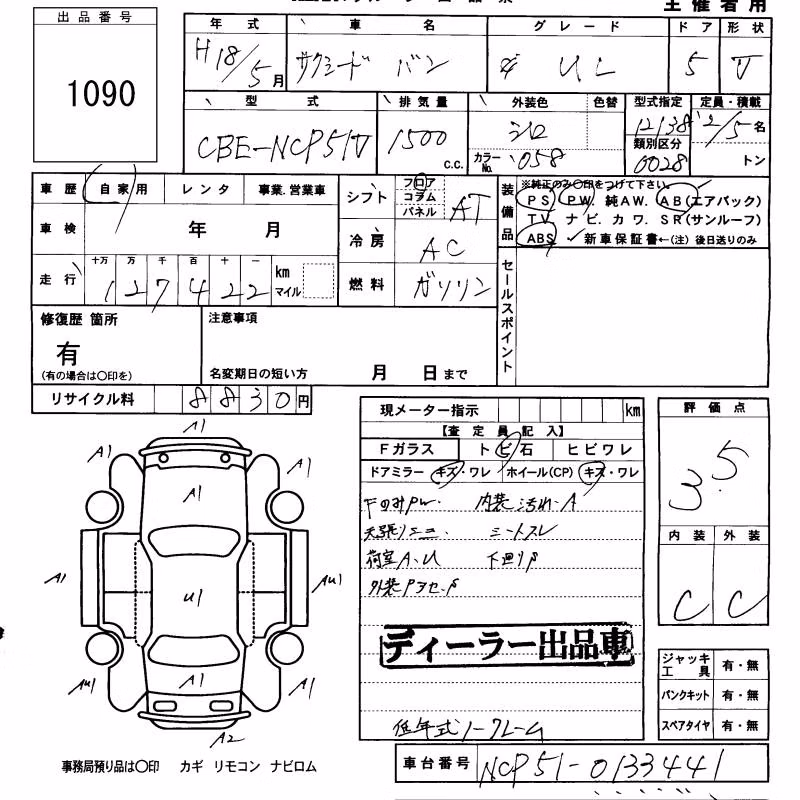 主催者用
出品番号
1090
年式 車名 グレード ドア 形状
H18/5月 サクシード バン UL 5 V
型式 排気量 外装色 色替 型式指定 定員・積載
CBE-NCP51V 1500 c.c. シロ 12138 2/5名
カラーNo. 058 類別区分 0028 トン
車歴 自家用 レンタ 事業.営業車
シフト フロア コラム パネル AT
車検 年 月
冷房 AC
走行 十万 万 千 百 十 一 km マイル
127422
燃料 ガソリン
装備品 ※純正のみ〇印をつけて下さい。
PS PW. 純AW. AB(エアバック)
TV ナビ. カワ. SR(サンルーフ)
ABS 新車保証書←(注) 後日送りのみ
セールスポイント
修復歴 箇所
有
(有の場合は〇印を)
注意事項
名変期日の短い方 月 日まで
リサイクル料 8830円
現メーター指示 km
【査定員記入】
Fガラス トビ石 ヒビワレ
ドアミラー キズ・ワレ ホイール(CP) キズ・ワレ
内装汚れ・A
シートスレ
荷室A.U 下回りP
ディーラー出品車
低年式ノークレーム
評価点
3.5
内装 外装
C C
ジャッキ工具 有・無
パンクキット 有・無
スペアタイヤ 有・無
A1
A1 A1
A1
A1 U1 AU1
AU1 A1 A1
A2
事務局預り品は〇印 カギ リモコン ナビロム
車台番号 NCP51-0133441